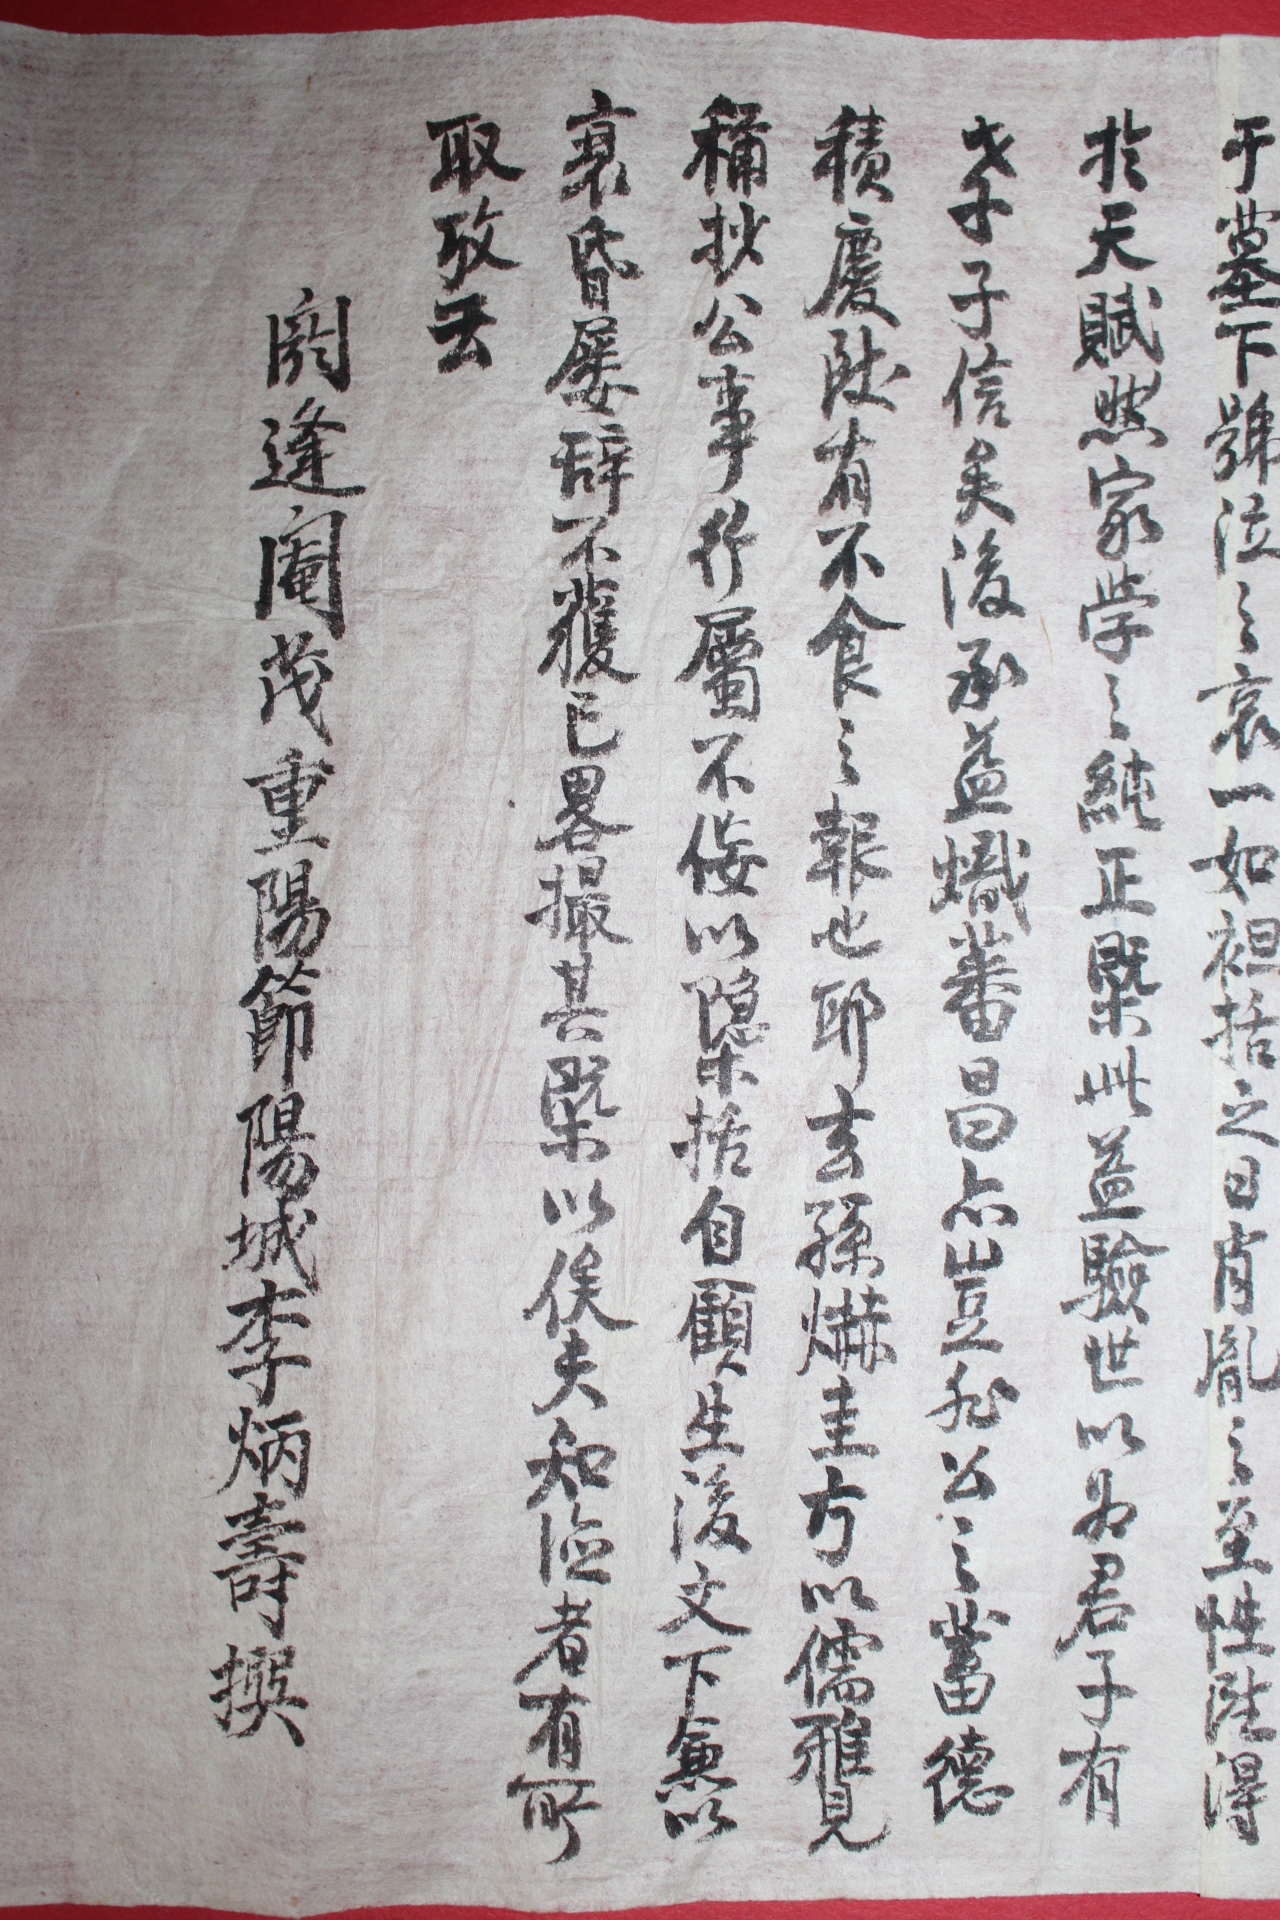 于墓下號泣之哀一如袒括之日肯胤之至性陞得
於天賦然家學之純正槩此益驗世以爲君子有
子信矣後承益熾蕃昌亦豈非公之蓄德
積慶陞有不食之報也耶玄孫爀圭方以儒雅見
稱抄公事行屬不佞以隱括自顧生後文下兼以
衰昏屢辞不獲已畧撮其槩以俟夫知德者有所
取攷云
閼逢閹茂重陽節陽城李炳壽撰